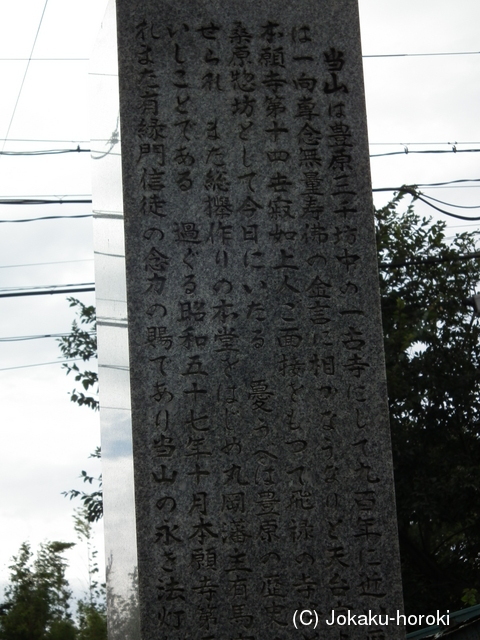 当山は豊原三千坊中の一古寺にして九百年に近
は一向専念無量寿佛の金言に相かなうなりと天台
本願寺第十四世寂如上人ご面接をもつて飛檐の寺
桑原惣坊として今日にいたる 憂うへは豊原の歴史
せられ また総欅作りの本堂をはじめ丸岡藩主有馬
いしことである 過ぐる昭和五十七年十月本願寺第
れまた有縁門信徒の念力の賜であり当山の永き法灯
(C) Jokaku-horoki